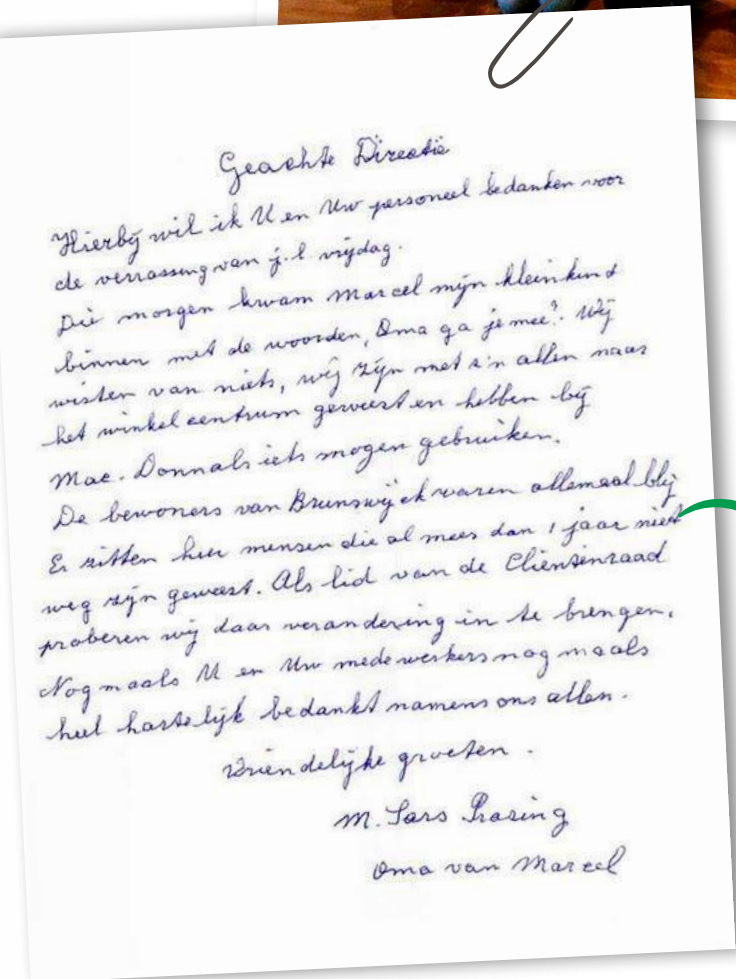 Geachte Directie
Hierbij wil ik U en Uw personeel bedanken voor
de verrassing van j.l. vrijdag.
Die morgen kwam Marcel mijn kleinkind
binnen met de woorden, Oma ga je mee? Wij
wisten van niets, wij zijn met z'n allen naar
het winkelcentrum geweest en hebben bij
Mac. Donnals iets mogen gebruiken.
De bewoners van Brunswijck waren allemaal blij
Er zitten hier mensen die al meer dan 1 jaar niet
weg zijn geweest. Als lid van de Cliëntenraad
proberen wij daar verandering in te brengen.
Nogmaals U en Uw medewerkers nogmaals
heel hartelijk bedankt namens ons allen.
Vriendelijke groeten.
M.
Oma van Marcel